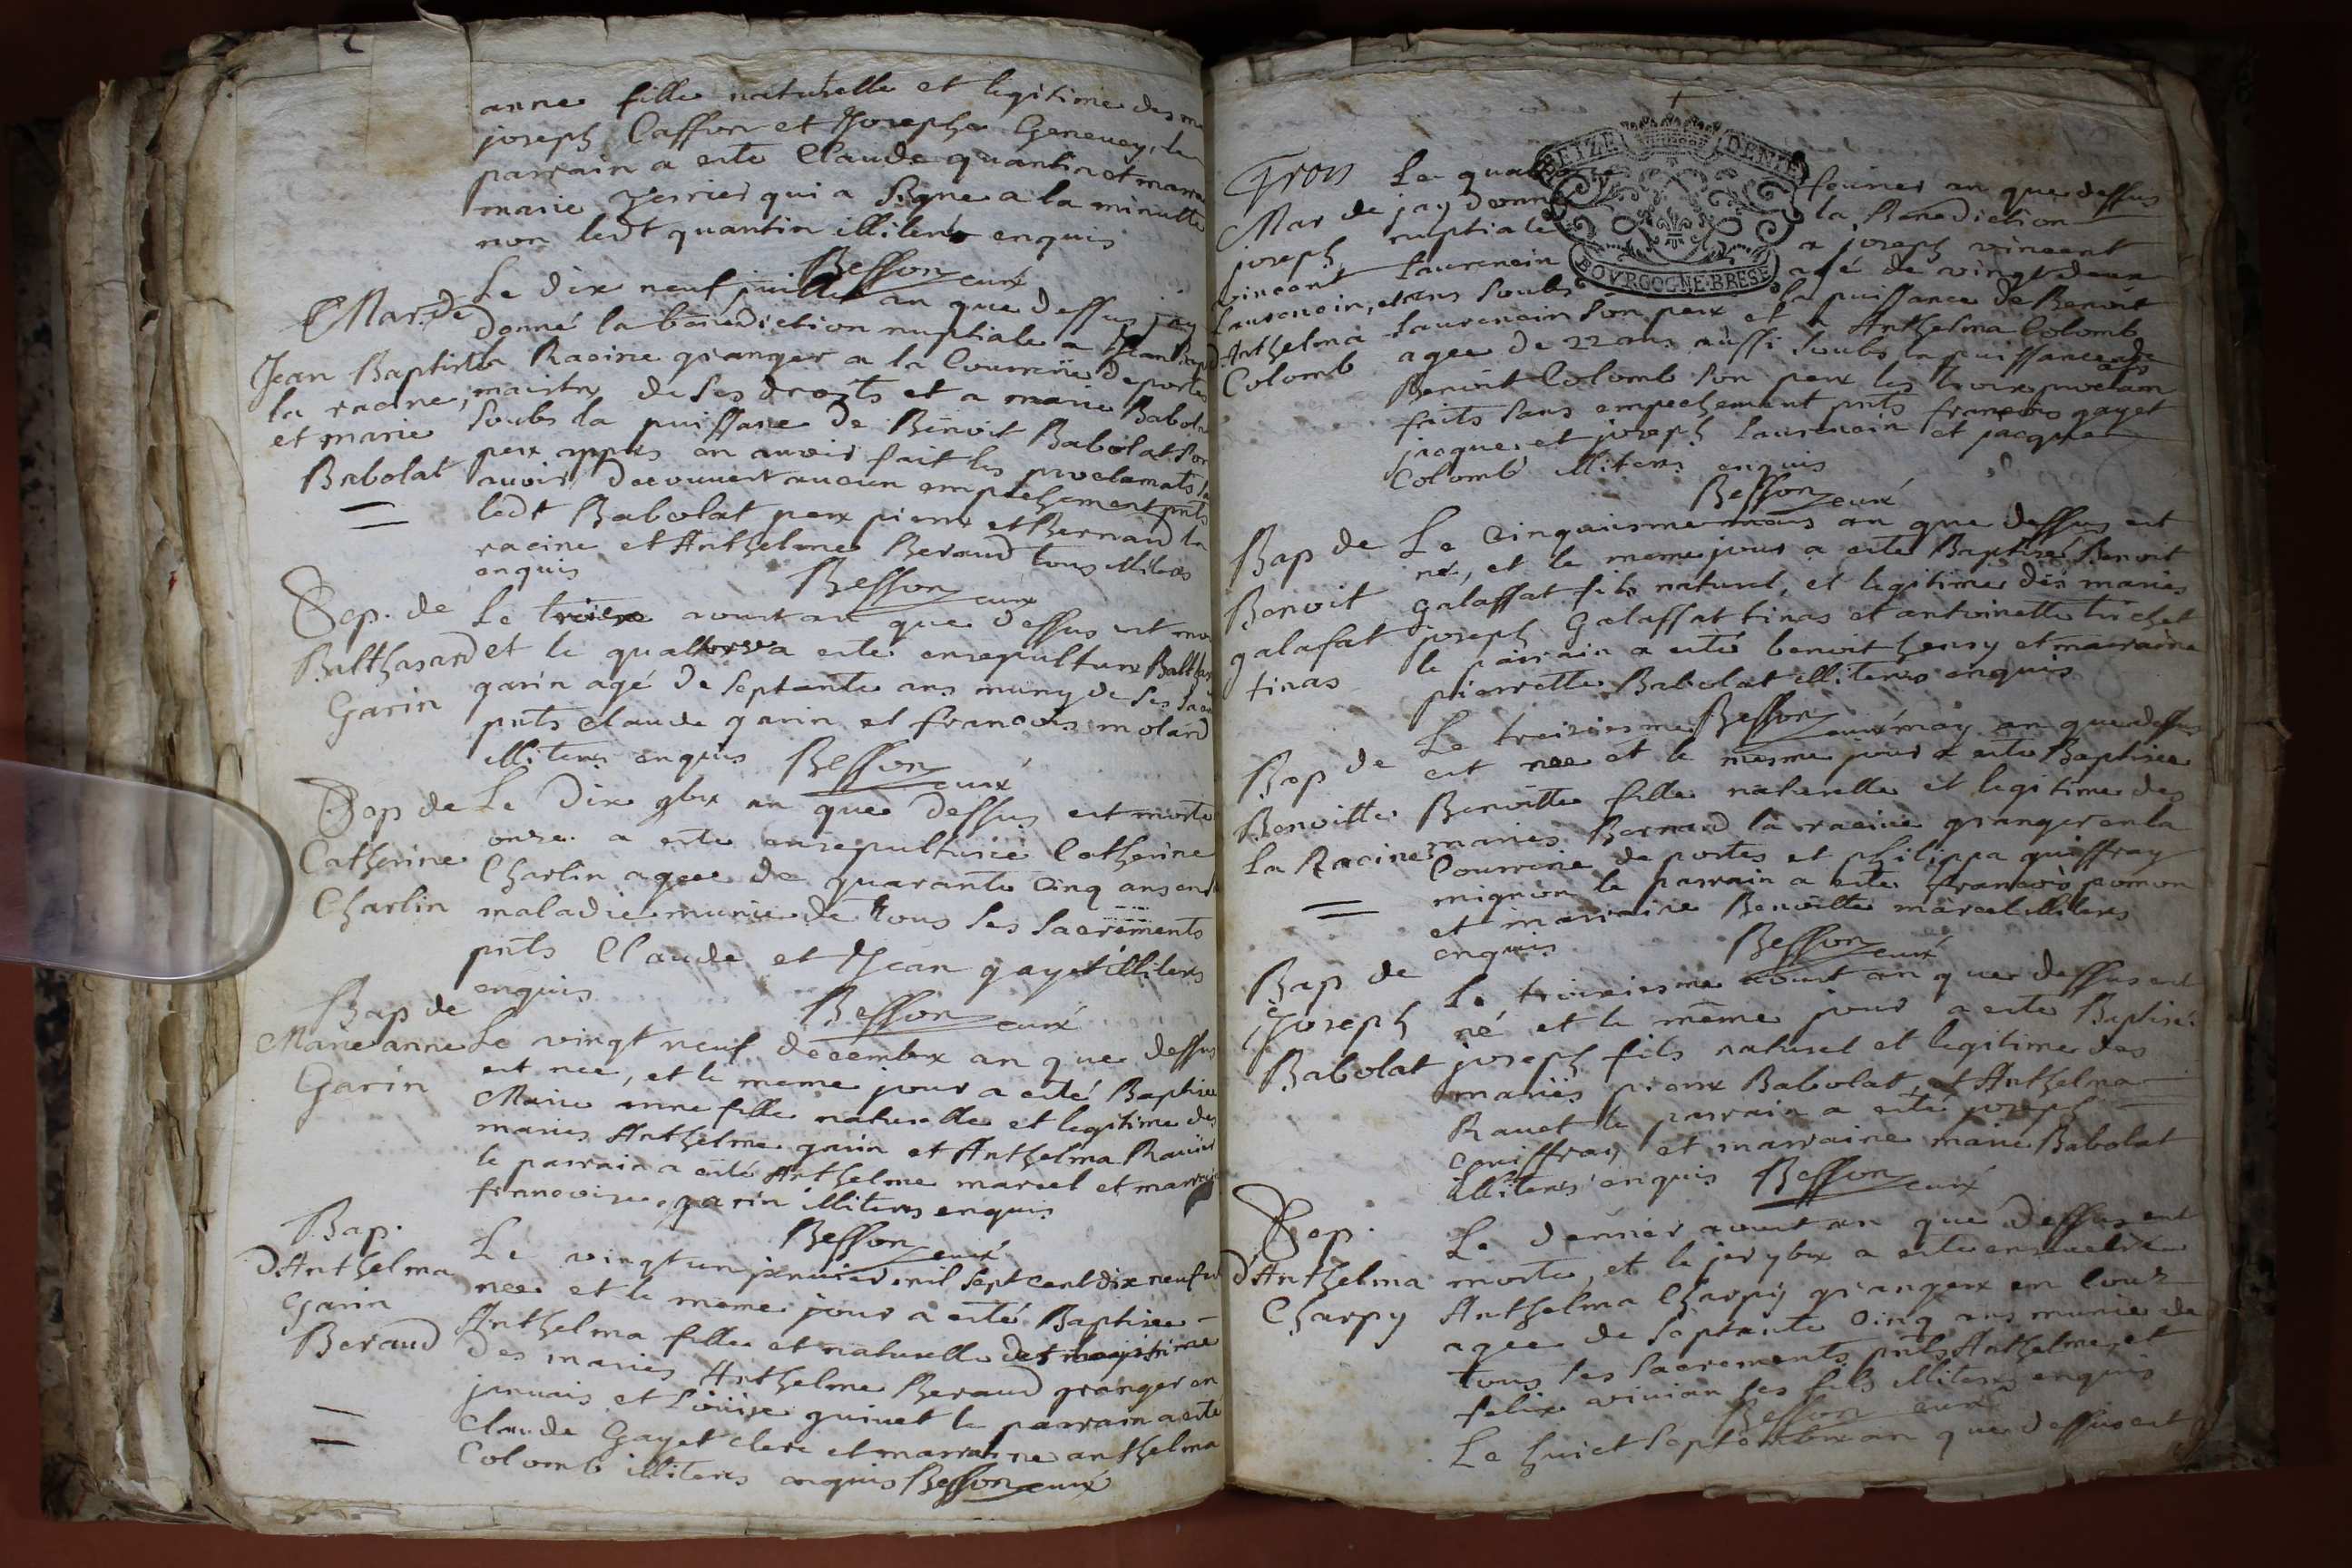 2
anne fille naturelle et legitime des
joseph Caffon et Josephe Geneuey, le
parrain a esté Claude quantin et marra
marie verrier qui a signe a la minutte
non ledt quantin illiterés enquis
Besson curé
Mar. de
Jean Baptiste
la racine,
et marie
Babolat
Le dix neuf juillet an que dessus jay
donné la benediction nuptiale a Jean Bap
la Racine granger a la Courrerie de portes
maistre de ses droits et a marie Babola
soubs la puissance de Benoit Babolat son
pere appres en avoir fait les proclamats
avoir decouvert aucun empechement pnts
ledt Babolat pere pierre et Bernard la
racine et Anthelme Beraud tous illiterés
enquis
Besson curé
Sep. de
Balthasard
Garin
Le aoust an que dessus est mor
et le a esté ensepulture Baltha
garin agé de septante ans muny de ses sacr
pnts Claude garin et francois molard
illiterés enquis Besson curé
Sep de
Catherine
Charlin
Le dix 9bre an que dessus est morte
onze a esté ensepulturée Catherine
Charlin agée de quarante cinq ans
maladie munie de tous ses sacrements
pnts Claude et Jean gayet illiterés
enquis
Besson curé
Bap de
Marie anne
Garin
Le vingt neuf decembre an que dessus
est née, et le meme jour a esté Baptisée
Marie anne fille naturelle et legitime des
mariés Anthelme garin et Anthelma Ravier
le parrain a esté Anthelme marcel et marraine
francoise garin illiterés enquis
Besson curé
Bap.
d'Anthelma
Garin
Beraud
Le vingt un janvier mil sept cent dix neuf
née et le meme jour a esté Baptisée
Anthelma fille et naturelle et legitime
des mariés Anthelme Beraud granger en
janvais et Louise guinet le parrain a esté
Claude Gayet clerc et marraine anthelma
Colomb illiterés enquis Besson curé
BEIZE DENIE
BOVRGOGNE·BRESSE
Trois
Mar de
joseph
vincent
Laurencin, et
d'Anthelma
Colomb
Le fevrier an que dessus
jay donné la Benediction
nuptiale a joseph vincent
Laurencin agé de vingt deux
ans soubs la puissance de Benoit
Laurencin son pere et a Anthelma Colomb
agée de 22 ans aussi soubs la puissance de
Benoit Colomb son pere les trois proclam
faits sans empechement pnts francois gayet
jacque et joseph Laurencin et jacque
Colomb illiterés enquis
Besson curé
Bap de
Benoit
galafat
tinas
Le cinquiesme mars an que dessus est
né, et le meme jour a esté Baptisé Benoit
galaffat fils naturel, et legitime des mariés
joseph Galaffat tinas et antoinette trichet
le parrain a esté benoit henry et marraine
pierrette Babolat illiterés enquis
Besson curé
Bap de
Benoitte
La Racine
Le treiziesme may an que dessus
est née et le mesme jour a esté Baptisée
Benoitte fille naturelle et legitime des
mariés Bernard la racine granger en la
Courrerie de portes et philippa quiffray
mignon le parrain a esté francois pomon
et marraine Benoitte marcel illiterés
enquis
Besson curé
Bap de
Joseph
Babolat
Le troisiesme aoust an que dessus est
né et le même jour a esté Baptisé
joseph fils naturel et legitime des
mariés pierre Babolat, et Anthelma
Ravet le parrain a esté joseph
quiffray et marraine marie Babolat
illiterés enquis Besson curé
Sep.
d'Anthelma
Charpy
Le dernier aoust an que dessus est
morte, et le jer 7bre a esté ensevelie
Anthelma Charpy grangere en
agée de septante cinq ans munie de
tous ses sacrements pnts Anthelme et
felix vivian ses fils illiterés enquis
Besson curé
Le huict septembre an que dessus est